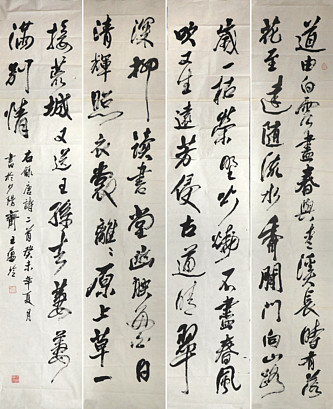 道由白雲盡春與青溪長時有落
花至遠随流水香閒門向山路
深柳讀書堂幽映每白日
清輝照衣裳離離原上草一
歲一枯榮野火燒不盡春風
吹又生遠芳侵古道晴翠
接荒城又送王孫去萋萋
滿別情
右録唐詩二首癸未年夏月
書於夕陽齋王